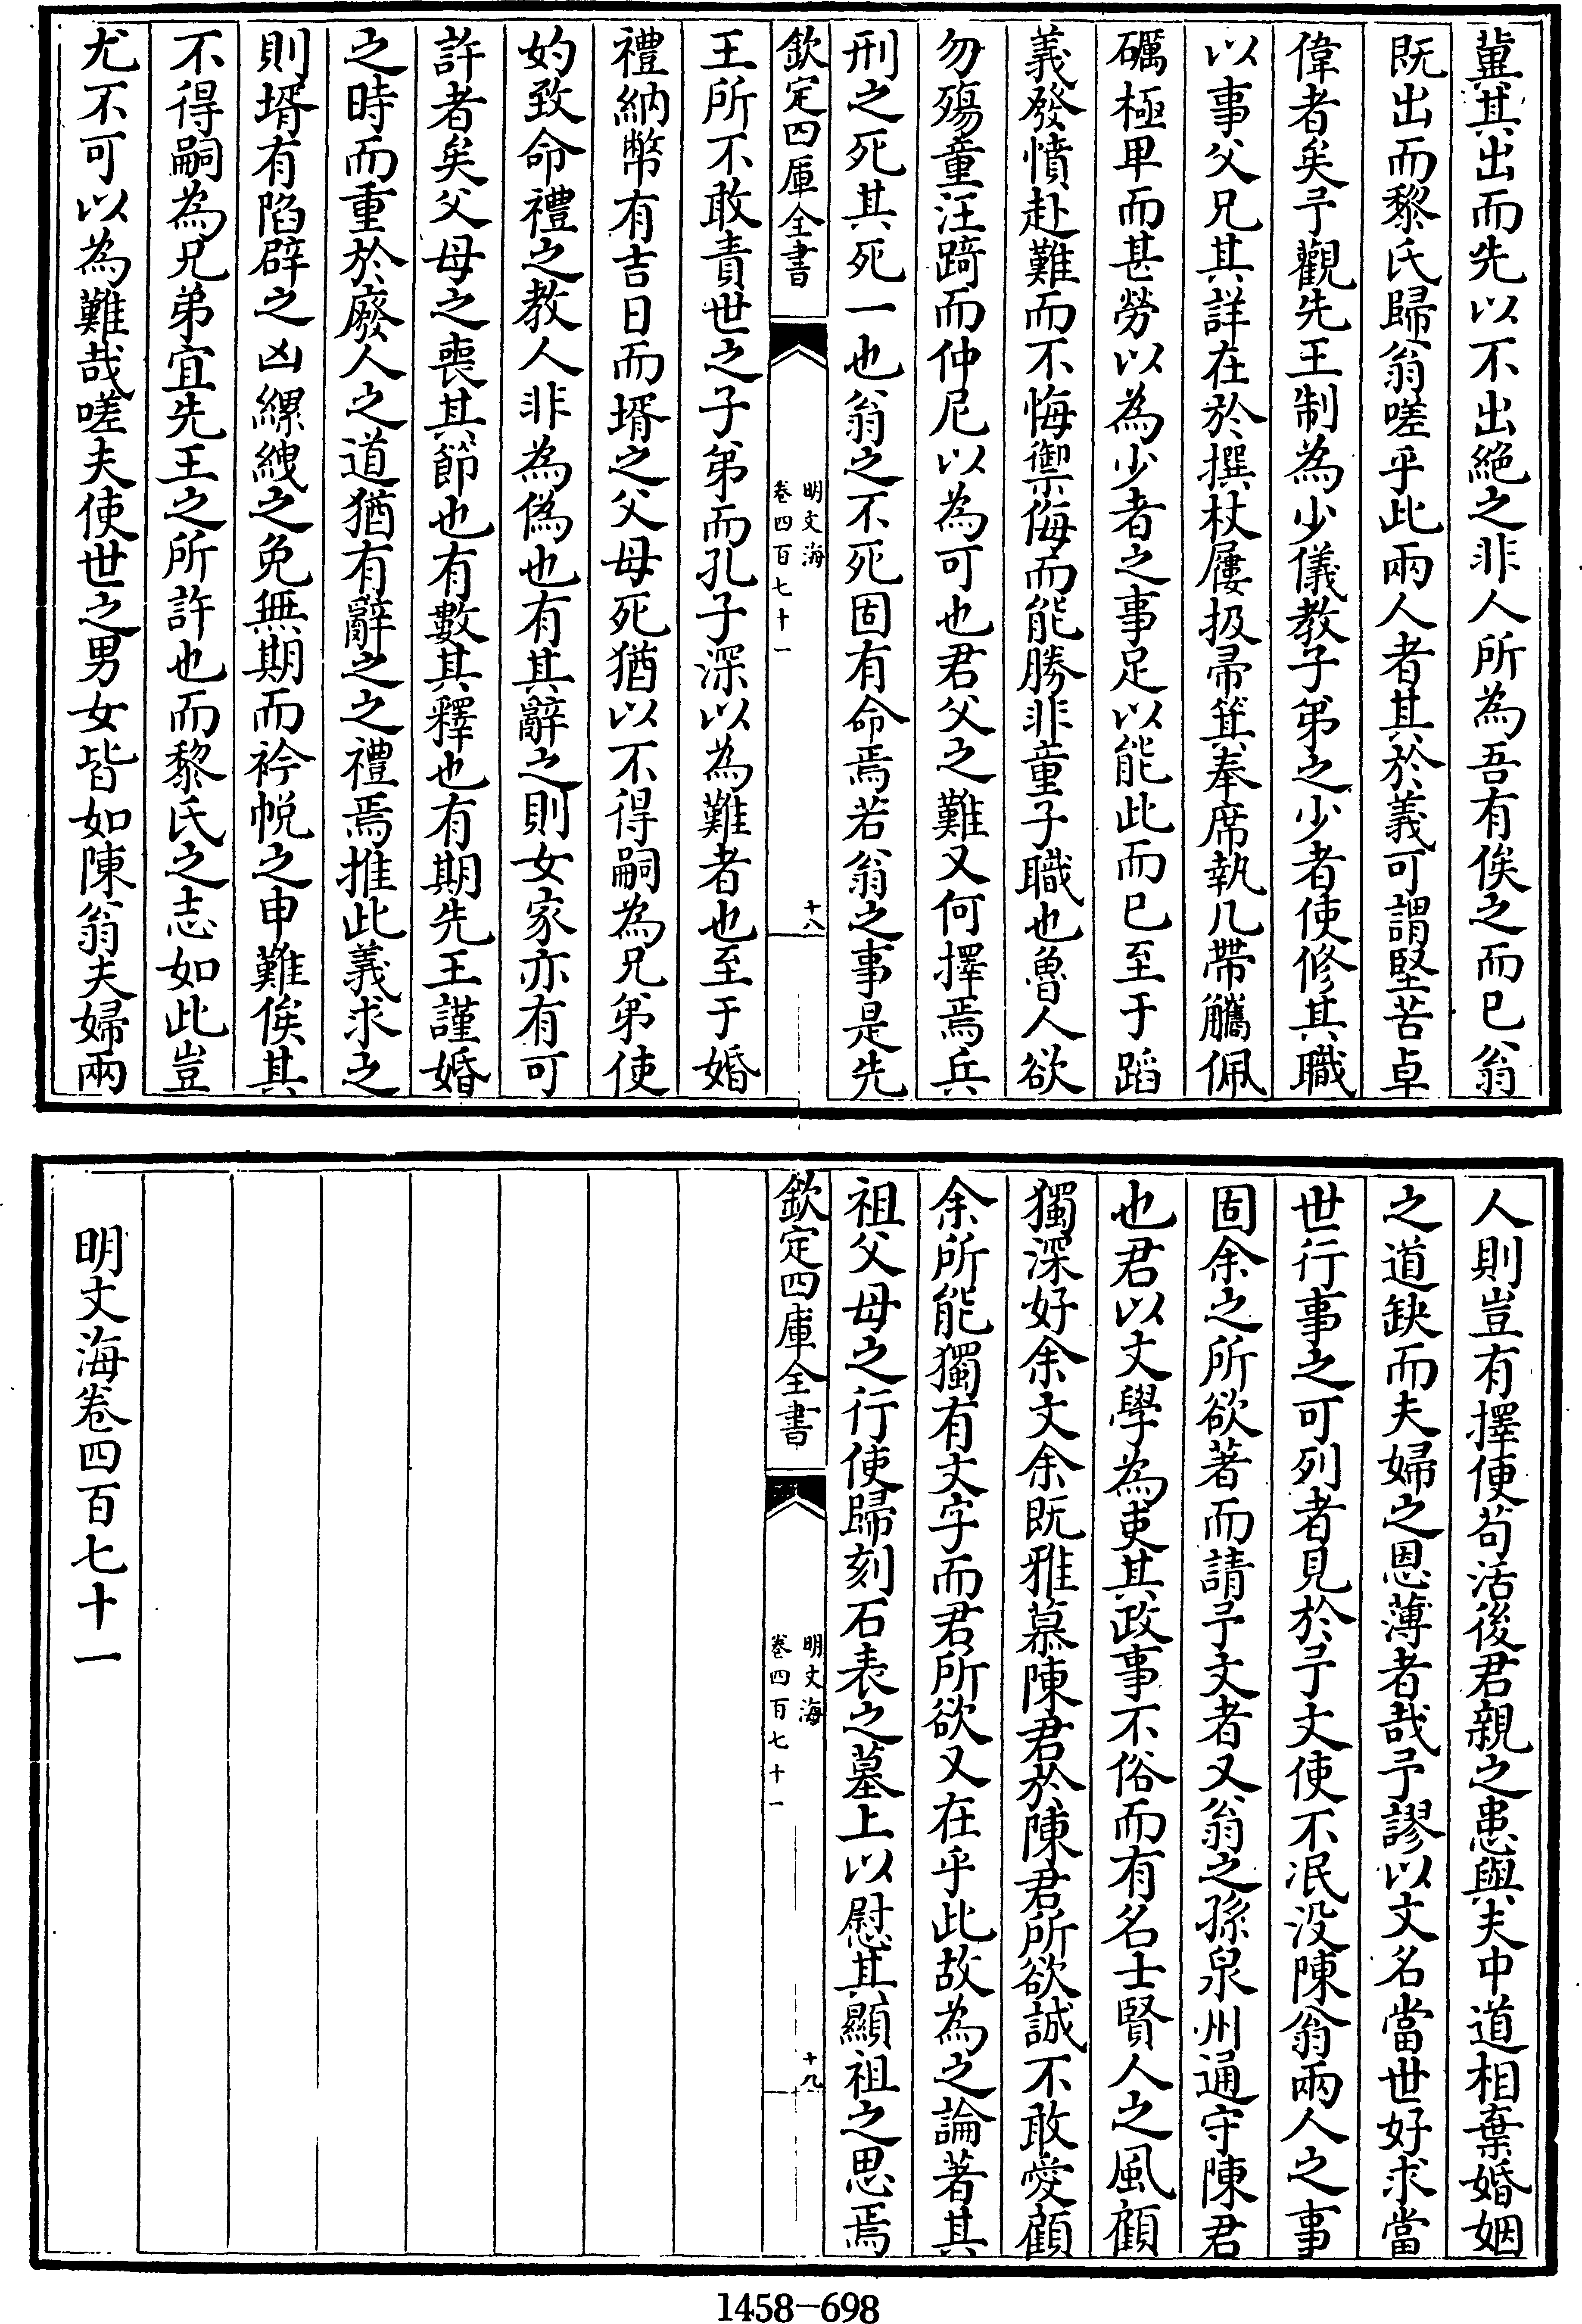 冀其出而先以不出絶之非人所為吾有俟之而已翁
既出而黎氏歸翁嗟乎此兩人者其於義可謂堅苦卓
偉者矣予觀先王制為少儀教子弟之少者使修其職
以事父兄其詳在於撰杖屨扱帚箕奉席執几帶觿佩
礪極卑而甚勞以為少者之事足以能此而已至于蹈
義發憤赴難而不悔禦侮而能勝非童子職也魯人欲
勿殤童汪踦而仲尼以為可也君父之難又何擇焉兵
刑之死其死一也翁之不死固有命焉若翁之事是先
欽定四庫全書
明文海
卷四百七十一
十八
王所不敢責世之子弟而孔子深以為難者也至于婚
禮納幣有吉日而壻之父母死猶以不得嗣為兄弟使
妁致命禮之教人非為偽也有其辭之則女家亦有可
許者矣父母之喪其節也有數其釋也有期先王謹婚
之時而重於廢人之道猶有辭之之禮焉推此義求之
則壻有陷辟之凶縲絏之免無期而衿帨之申難俟其
不得嗣為兄弟宜先王之所許也而黎氏之志如此豈
尤不可以為難哉嗟夫使世之男女皆如陳翁夫婦兩
人則豈有擇便苟活後君親之患與夫中道相棄婚姻
之道缺而夫婦之恩薄者哉予謬以文名當世好求當
世行事之可列者見於予文使不泯没陳翁兩人之事
固余之所欲著而請予文者又翁之孫泉州通守陳君
也君以文學為吏其政事不俗而有名士賢人之風顧
獨深好余文余既雅慕陳君於陳君所欲誠不敢愛顧
余所能獨有文字而君所欲又在乎此故為之論著其
祖父母之行使歸刻石表之墓上以慰其顯祖之思焉
欽定四庫全書
明文海
卷四百七十一
十九
明文海卷四百七十一
1458—698